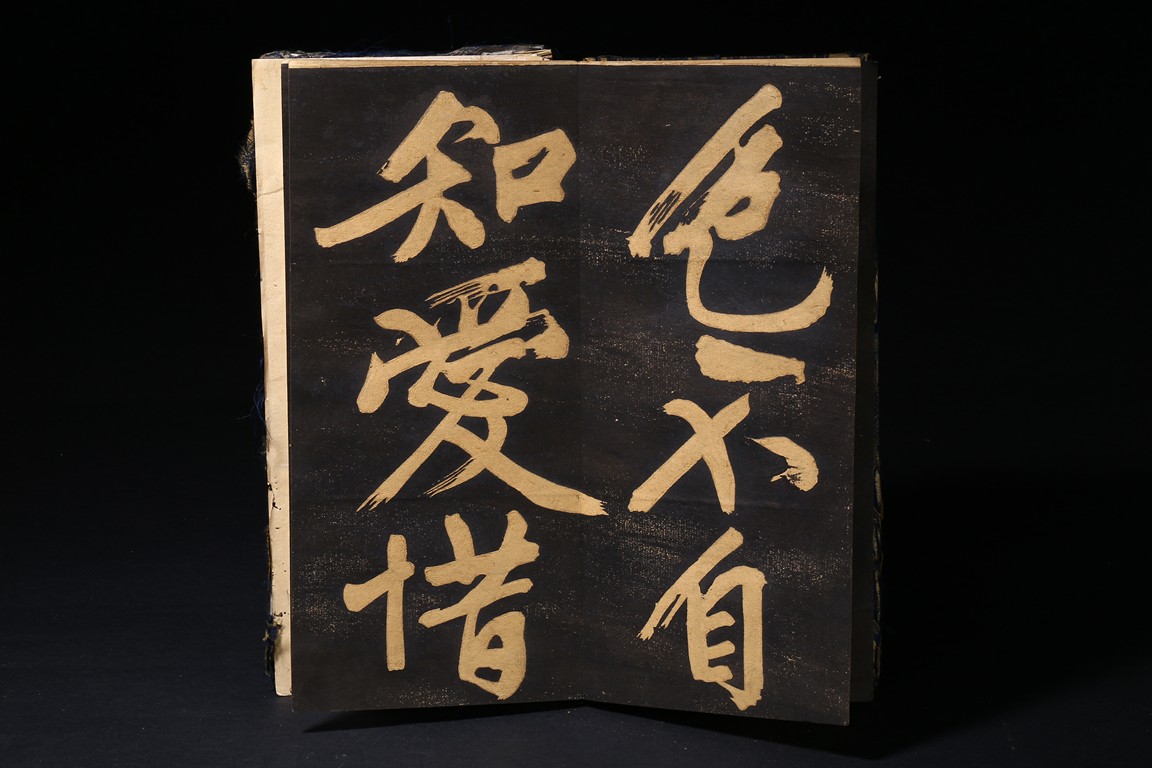 色不自
知爱惜